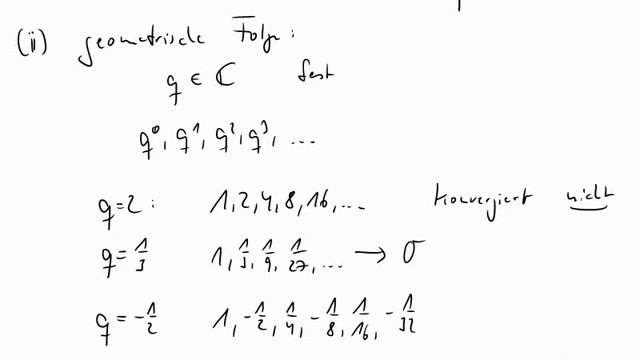 (ii) geometrische Folge:
q ∈ ℂ fest
q⁰, q¹, q², q³, ...
q=2: 1, 2, 4, 8, 16, ... konvergiert nicht
q=1/3 1, 1/3, 1/9, 1/27, ... → 0
q=-1/2 1, -1/2, 1/4, -1/8, 1/16, -1/32